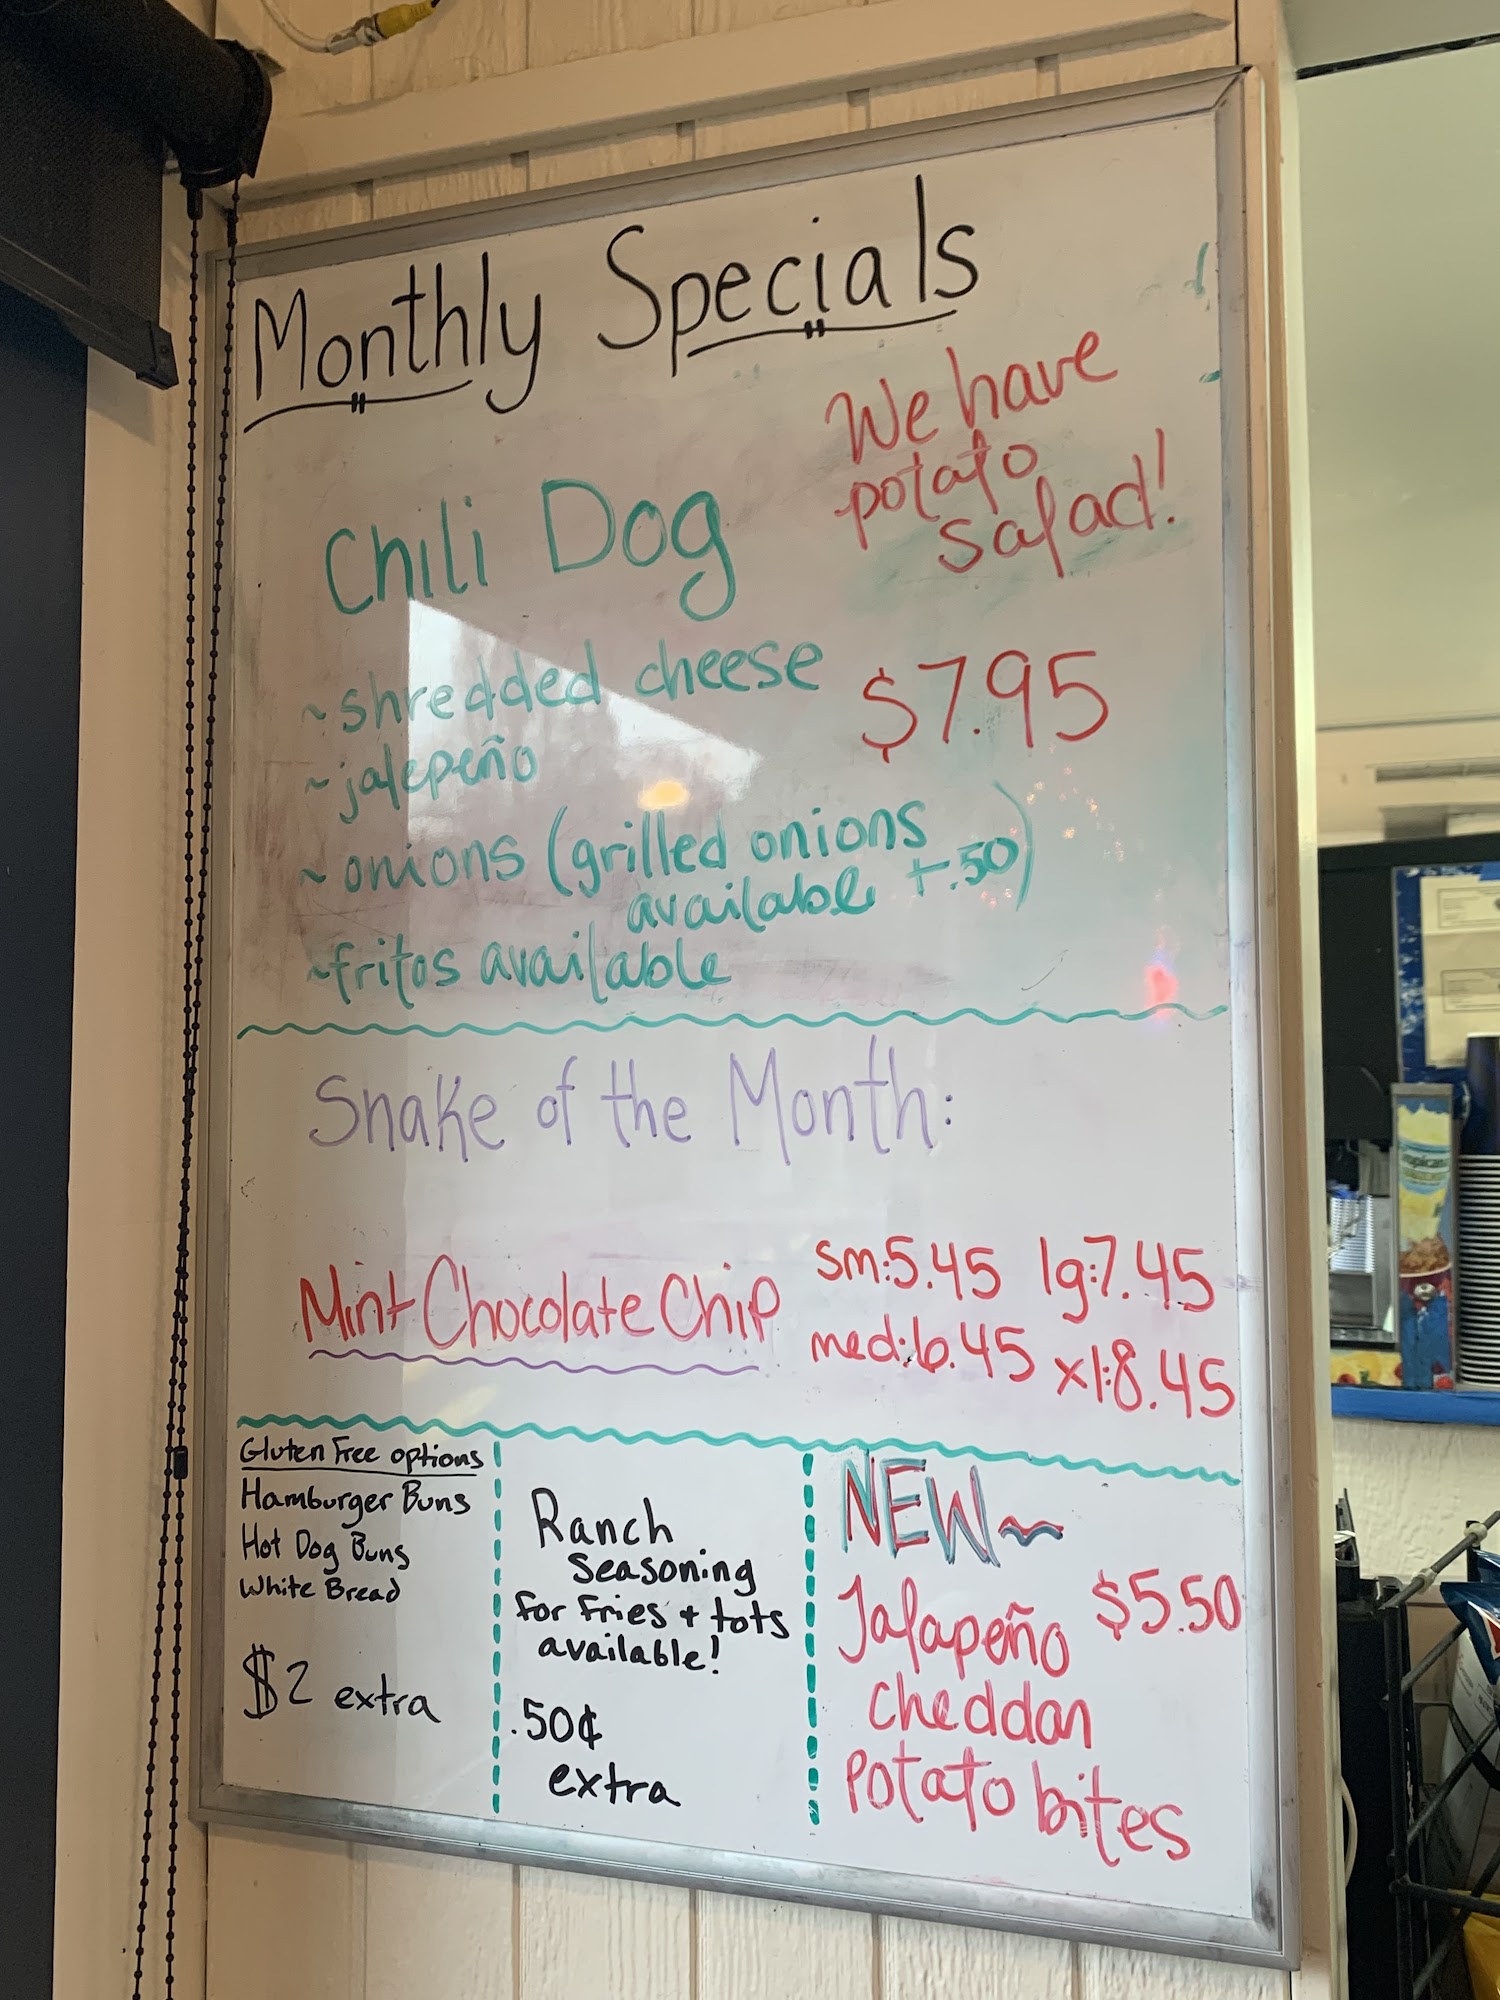 Monthly Specials
We have
potato
salad!
Chili Dog
~shredded cheese
$7.95
~jalepeño
~onions (grilled onions
available +.50)
~fritos available
Shake of the Month:
Mint Chocolate Chip
sm:5.45 lg:7.45
med:6.45 xl:8.45
Gluten Free options
Hamburger Buns
Hot Dog Buns
White Bread
$2 extra
Ranch
seasoning
for fries + tots
available!
.50¢
extra
NEW~
Jalapeño $5.50
cheddar
potato bites